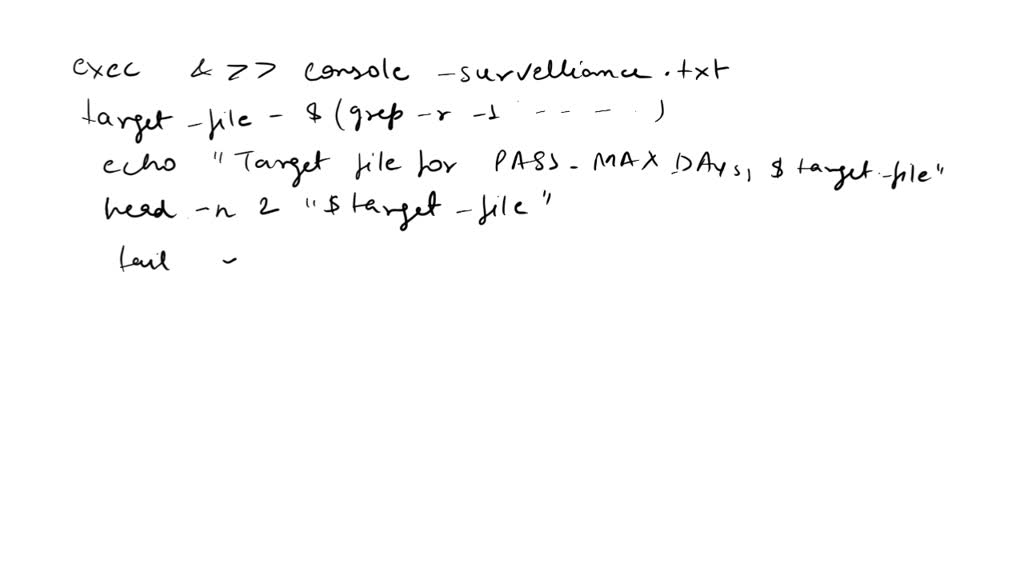 exec & >> console -survelliance.txt
target -file - $ (grep -r -1 - - - - )
echo "Target file for PASS - MAX DAYS, $ target -file"
head -n 2 "$ target -file"
tail -